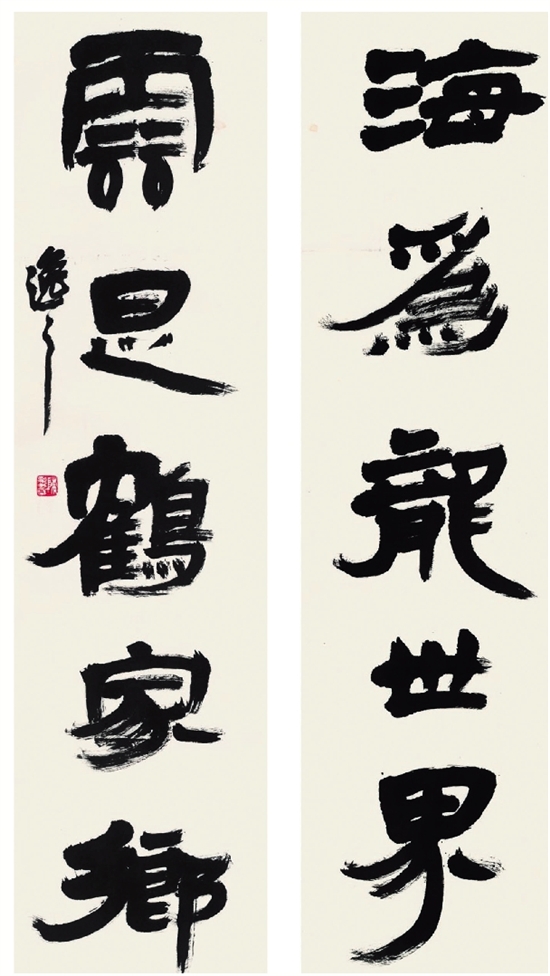 海為龍世界
雲是鶴家鄉
逸之